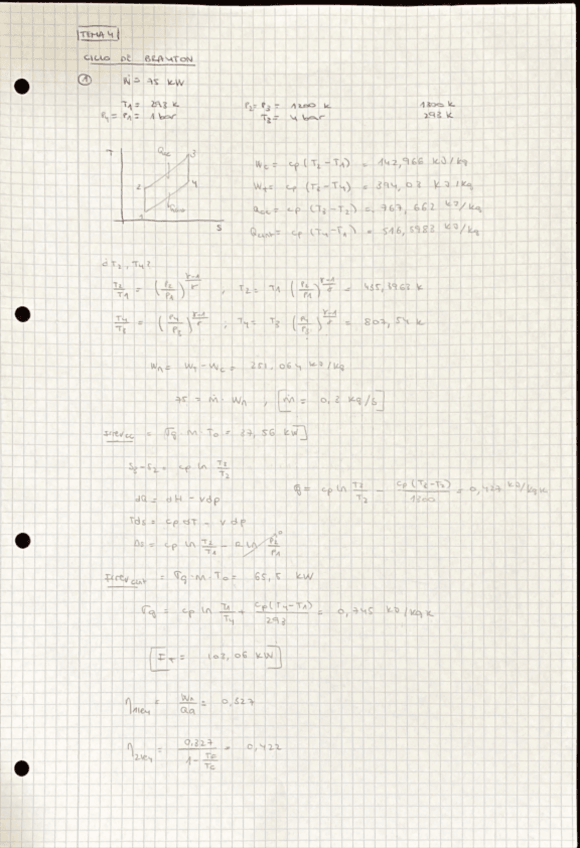 TEMA 4
CICLO DE BRAYTON
① Ẇ = 75 kW
T1 = 293 K P2 = P3 = 1200 K 1200 K
P4 = P1 = 1 bar T3 = 4 bar 293 K
T 3 2 4 1 S
Wc = cp (T2 - T1) = 142,966 kJ/kg
WT = cp (T3 - T4) = 394,03 kJ/kg
= cp (T3 - T2) = 767,662 kJ/kg
= cp (T4 - T1) = 516,5983 kJ/kg
¿T2, T4?
T2/T1 = (P2/P1)^(γ-1/γ) , T2 = T1 (P2/P1)^(γ-1/γ) = 435,3963 K
T4/T3 = (P4/P3)^(γ-1/γ) ; T4 = T3 (P4/P3)^(γ-1/γ) = 807,54 K
Wn = WT - Wc = 251,064 kJ/kg
75 = ṁ · Wn , [ṁ = 0,3 kg/s]
= σq · m · T0 = 37,56 kW]
S3 - S2 = cp ln T3/T2
σ = cp ln T3/T2 - cp(T3-T2)/1200 = 0,427 kJ/kgK
dQ = dH - vdp
Tds = cp dT - v dp
Δs = cp ln T2/T1 - R ln P2/P1 0
= σq · m · T0 = 65,5 kW
σq = cp ln T1/T4 + cp(T4-T1)/293 = 0,745 kJ/kgK
[IT = 103,06 kW]
η1ley = Wn/Qa = 0,327
η2ley = 0,327/(1 - TF/TC) = 0,422